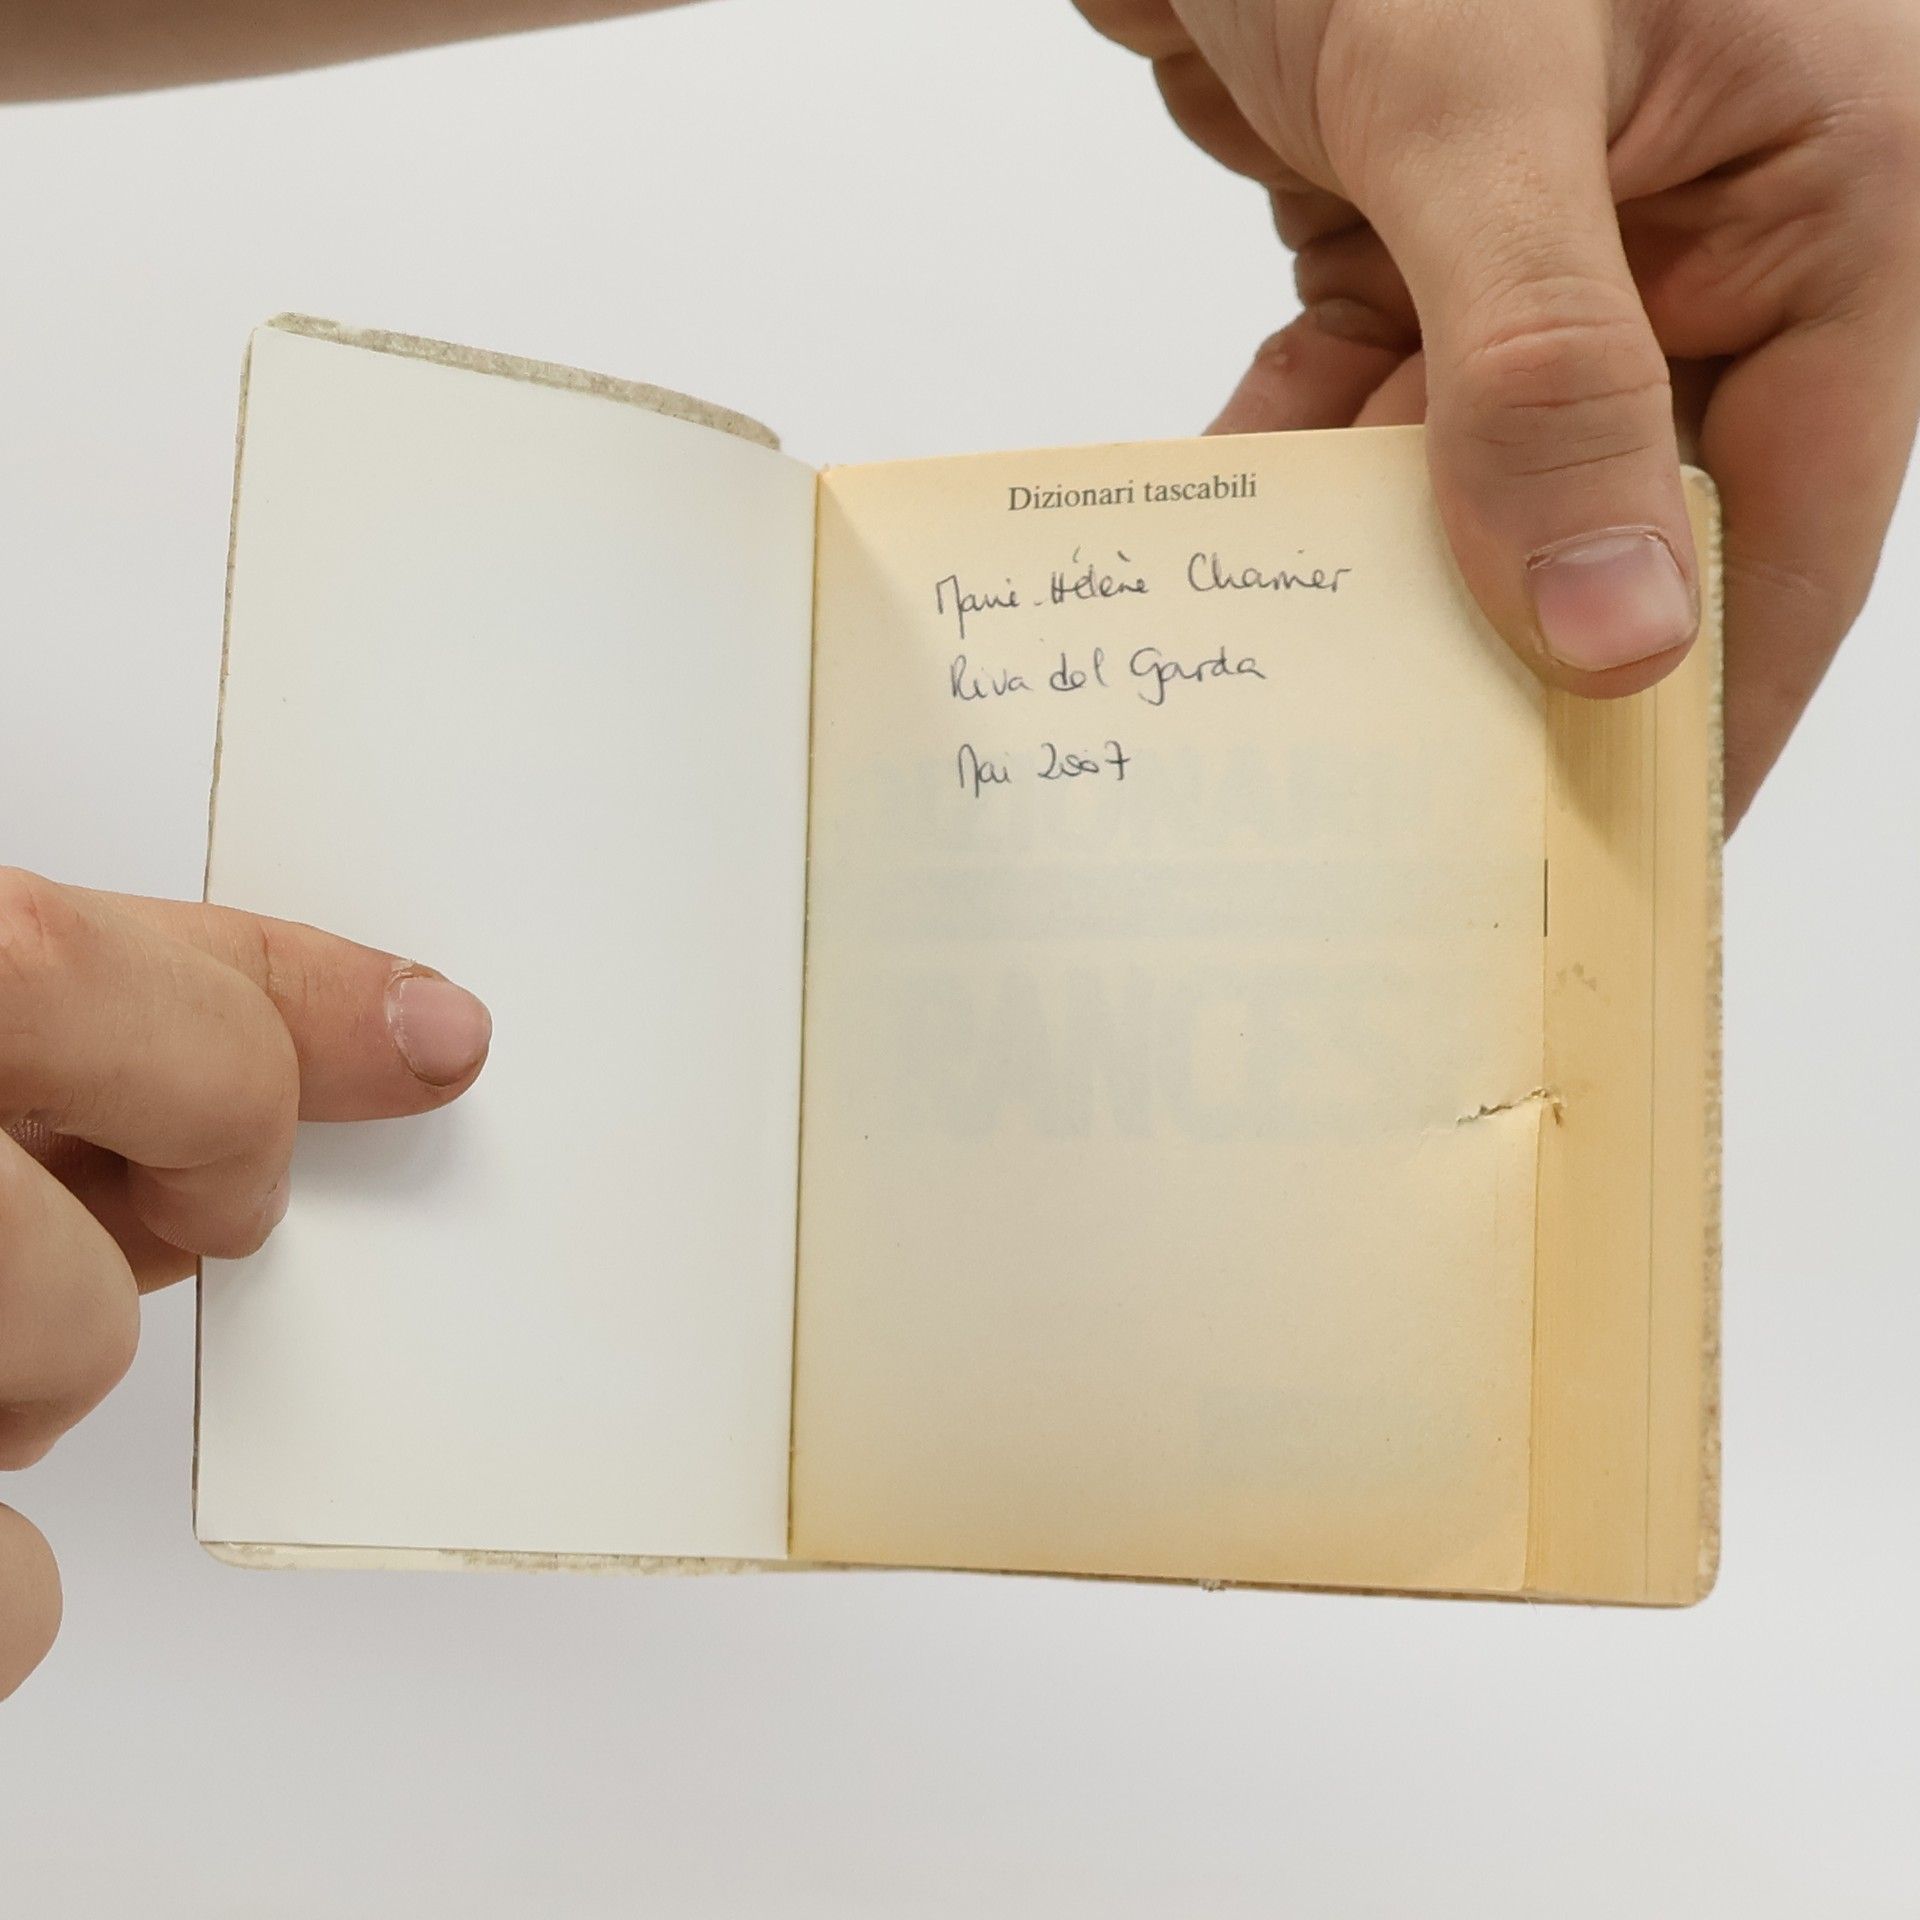 Dizionari tascabili
Marie-Hélène Charrier
Riva del Garda
Mai 2007